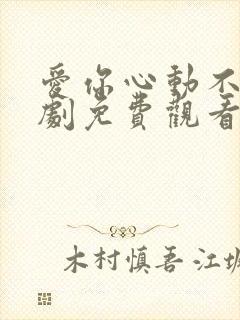 愛你心動不
劇免費觀看
木村慎吾 江坂